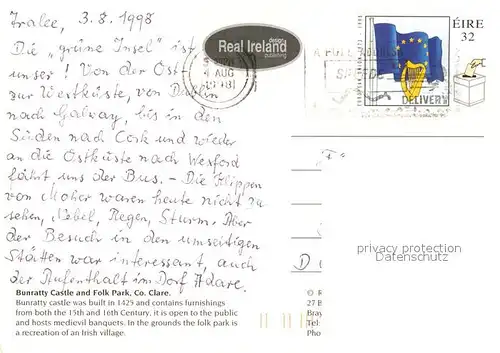 Tralee, 3.8.1998
Die „grüne Insel" ist
unser! Von der Ost-
zur Westküste, von Dublin
nach Galway, bis in den
Süden nach Cork und wieder
an die Ostküste nach Wexford
fährt uns der Bus. - Die Klippen
von Moher waren heute nicht zu
sehen, Nebel, Regen, Sturm. Aber
der Besuch in den umseitigen
Stätten war interessant, auch
der Aufenthalt im Dorf Adare.
Bunratty Castle and Folk Park, Co. Clare.
Bunratty castle was built in 1425 and contains furnishings
from both the 15th and 16th Century, it is open to the public
and hosts medievil banquets. In the grounds the folk park is
a recreation of an Irish village.
Real Ireland
design
publishing
4 AUG
ÉIRE
32
SPEEDS
DELIVERY
privacy protection
Datenschutz
D
©
27 B
Bray
Tel:
Fax:
Pho